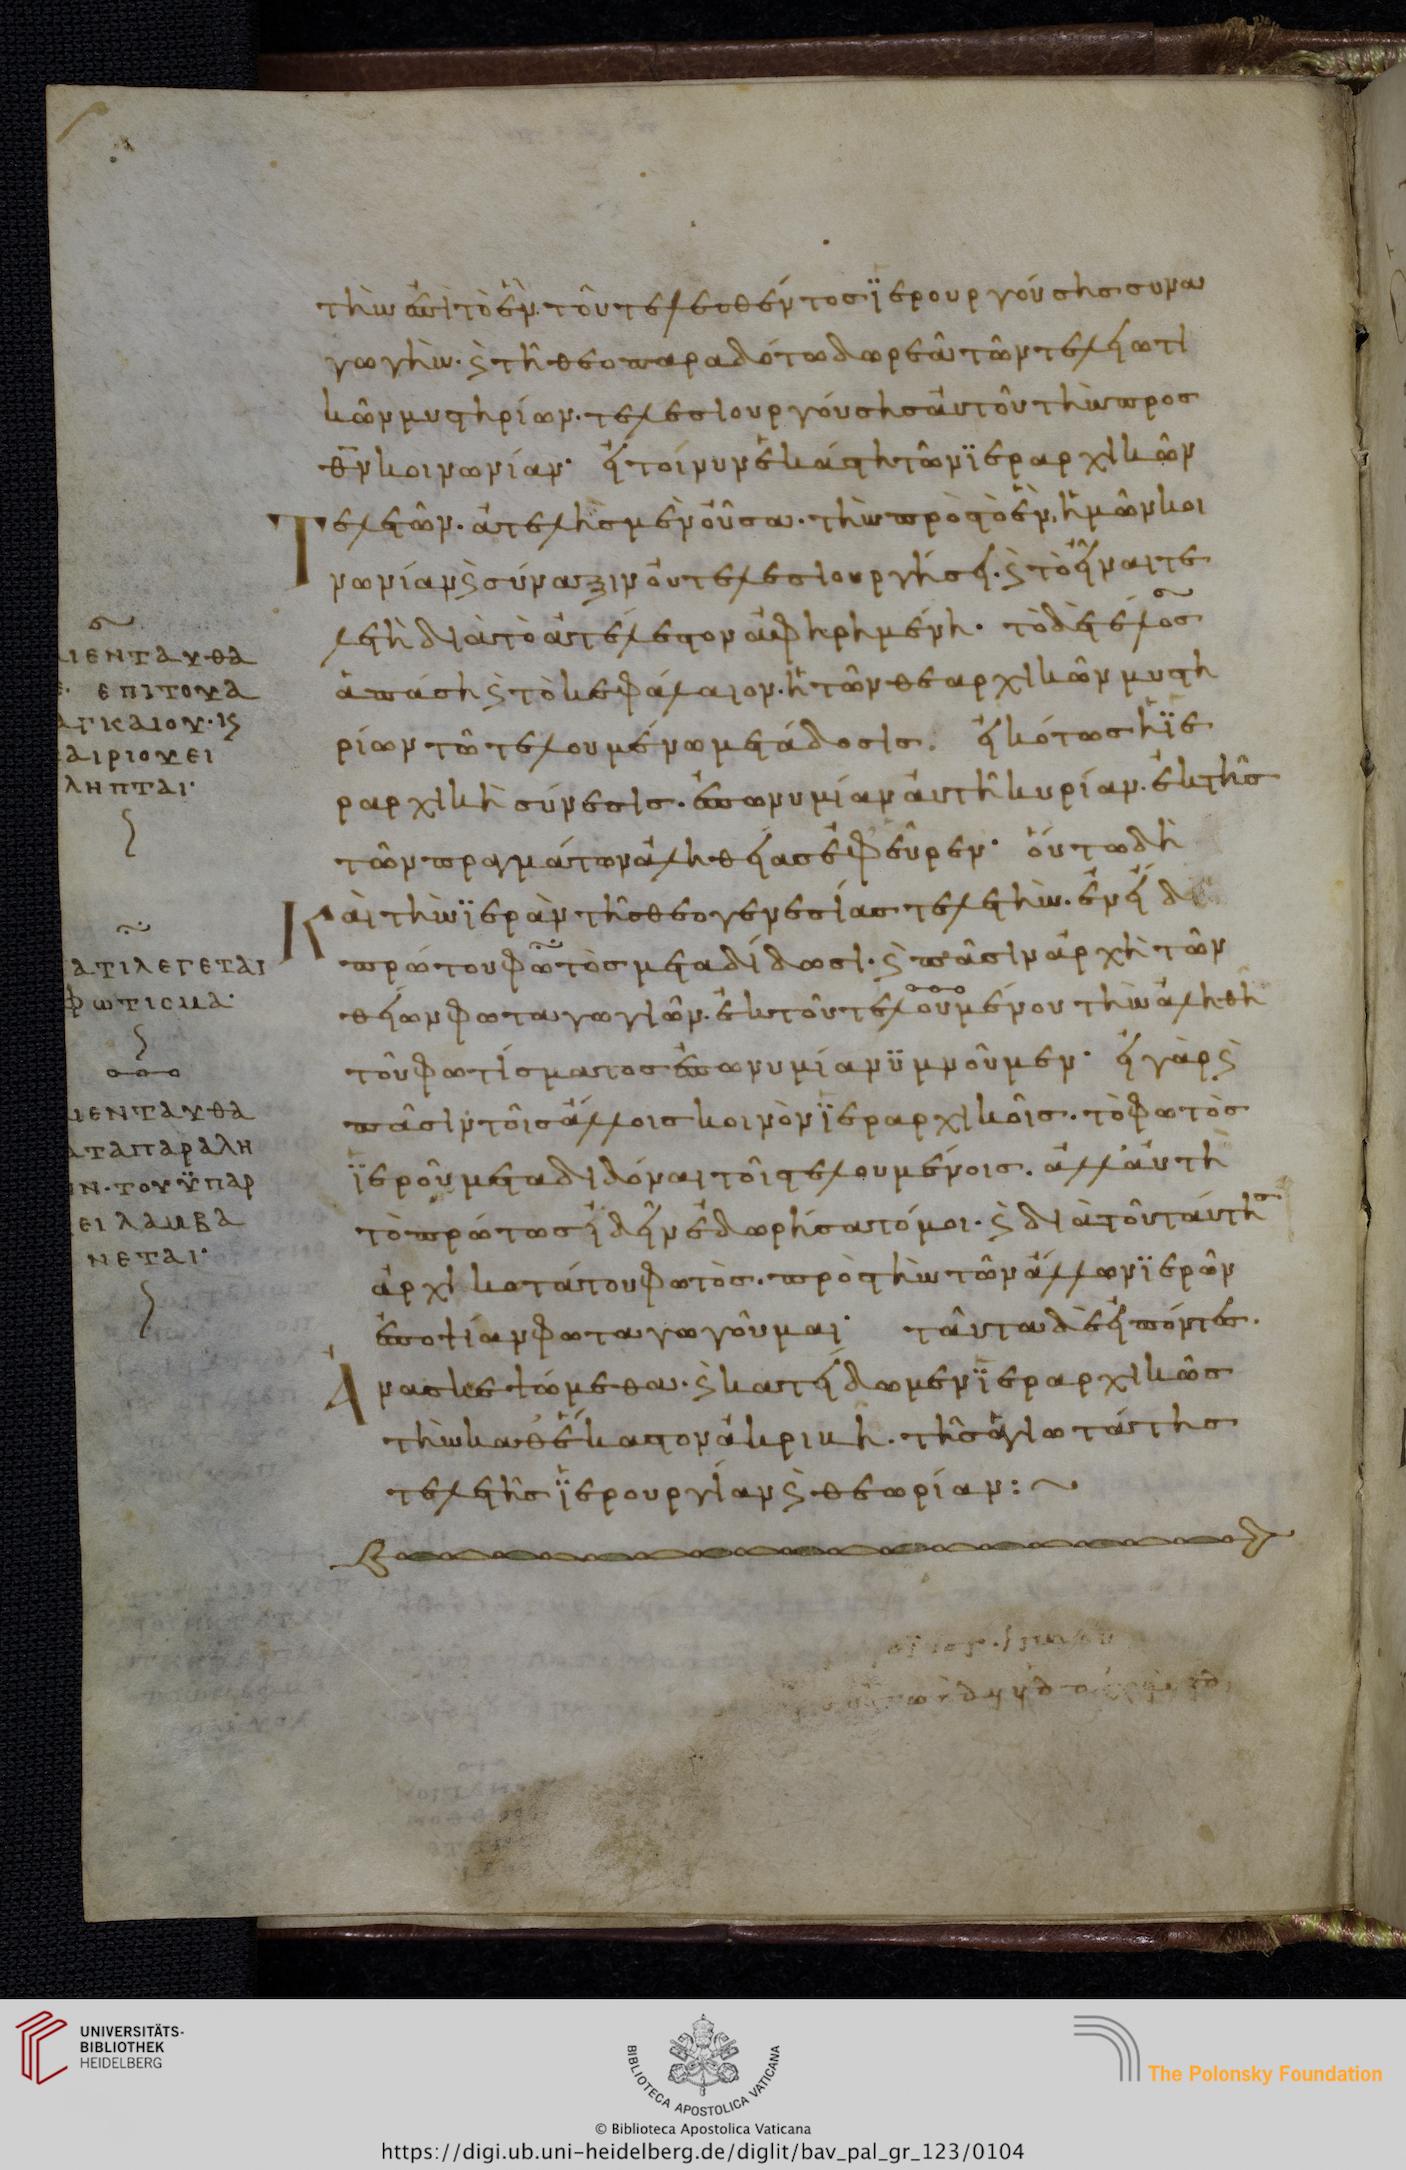 τὴν ἐπὶ τὸ ἓν τοῦ τελεσθέντος ϊερουργούσης συνα
γωγὴν· ϗ τῆ θεοπαραδότω δωρεᾶ τῶν τελειωτι
κῶν μυστηρίων· τελεσιουργούσης αὐτοῦ τὴν προς
θ̅ν̅ κοινωνίαν· εἰ τοίνυν ἑκάστη τῶν ϊεραρχικῶν
τελετῶν· ἀτελὴς μὲν οὖσα· τὴν πρὸς τὸ ἓν, ἡμῶν κοι
νωνίαν ϗ σύναξιν οὐ τελεσιουργήσει· ϗ τὸ εἶναι τε
λετὴ διὰ τὸ ἀτέλεστον ἀφηρημένη· τὸ δὲ τέλος
ἁπάση ϗ τὸ κεφάλαιον· ἡ τῶν θεαρχικῶν μυστη
ρίων τῶ τελουμένω μετάδοσις· εἰκότως ἡ ϊε
ραρχικὴ σύνεσις· ἐπωνυμίαν αὐτῆ κυρίαν· ἐκ τῆς
τῶν πραγμάτων ἀληθείας ἐφεῦρεν· οὕτω δὴ
Καὶ τὴν ϊερὰν τῆς θεογενεσίας τελετὴν· ἐπεὶ δ
πρώτου φωτὸς μεταδίδωσι· ϗ πᾶσιν ἀρχὴ τῶν
θείων φωταγωγιῶν· ἐκ τοῦ τελουμένου τὴν ἀληθῆ
τοῦ φωτίσματος ἐπωνυμίαν ϋμνοῦμεν· εἰ γὰρ ϗ
πᾶσιν τοῖς ἄλλοις κοινὸν ϊεραρχικοῖς· τὸ φωτὸς
ϊεροῦ μεταδιδόναι τοῖς τελουμένοις· ἀλλ' αὐτὴ
τὸ πρώτως ἰδεῖν ἐδωρήσατό μοι· ϗ διὰ τοῦ ταύτης
ἀρχικωτάτου φωτὸς· πρὸς τὴν τῶν ἄλλων ϊερῶν
ἐποψίαν φωταγωγοῦμαι· ταῦτα δὲ εἰπόντες·
Ἀνασκεψώμεθα· ϗ κατείδωμεν ϊεραρχικῶς
τὴν καθ' ἕκαστον ἀκριβῆ· τῆς ἁγιωτάτης
τελετῆς ϊερουργίαν ϗ θεωρίαν:
ΙΕΝΤΑΥΘΑ
ΕΠΙΤΟΥΑ
ΑΓΚΑΙΟΥ· ΙϚ
ΑΙΡΙΟΥΕΙ
ΛΗΠΤΑΙ·
ΑΤΙΛΕΓΕΤΑΙ
ΦΩΤΙCΜΑ·
ΙΕΝΤΑΥΘΑ
ΑΤΑΠΑΡΑΛΗ
Ν· ΤΟΥΫΠΑΡ
ΕΙΛΑΜΒΑ
ΝΕΤΑΙ·
UNIVERSITÄTS-
BIBLIOTHEK
HEIDELBERG
BIBLIOTECA APOSTOLICA VATICANA
The Polonsky Foundation
© Biblioteca Apostolica Vaticana
https://digi.ub.uni-heidelberg.de/diglit/bav_pal_gr_123/0104